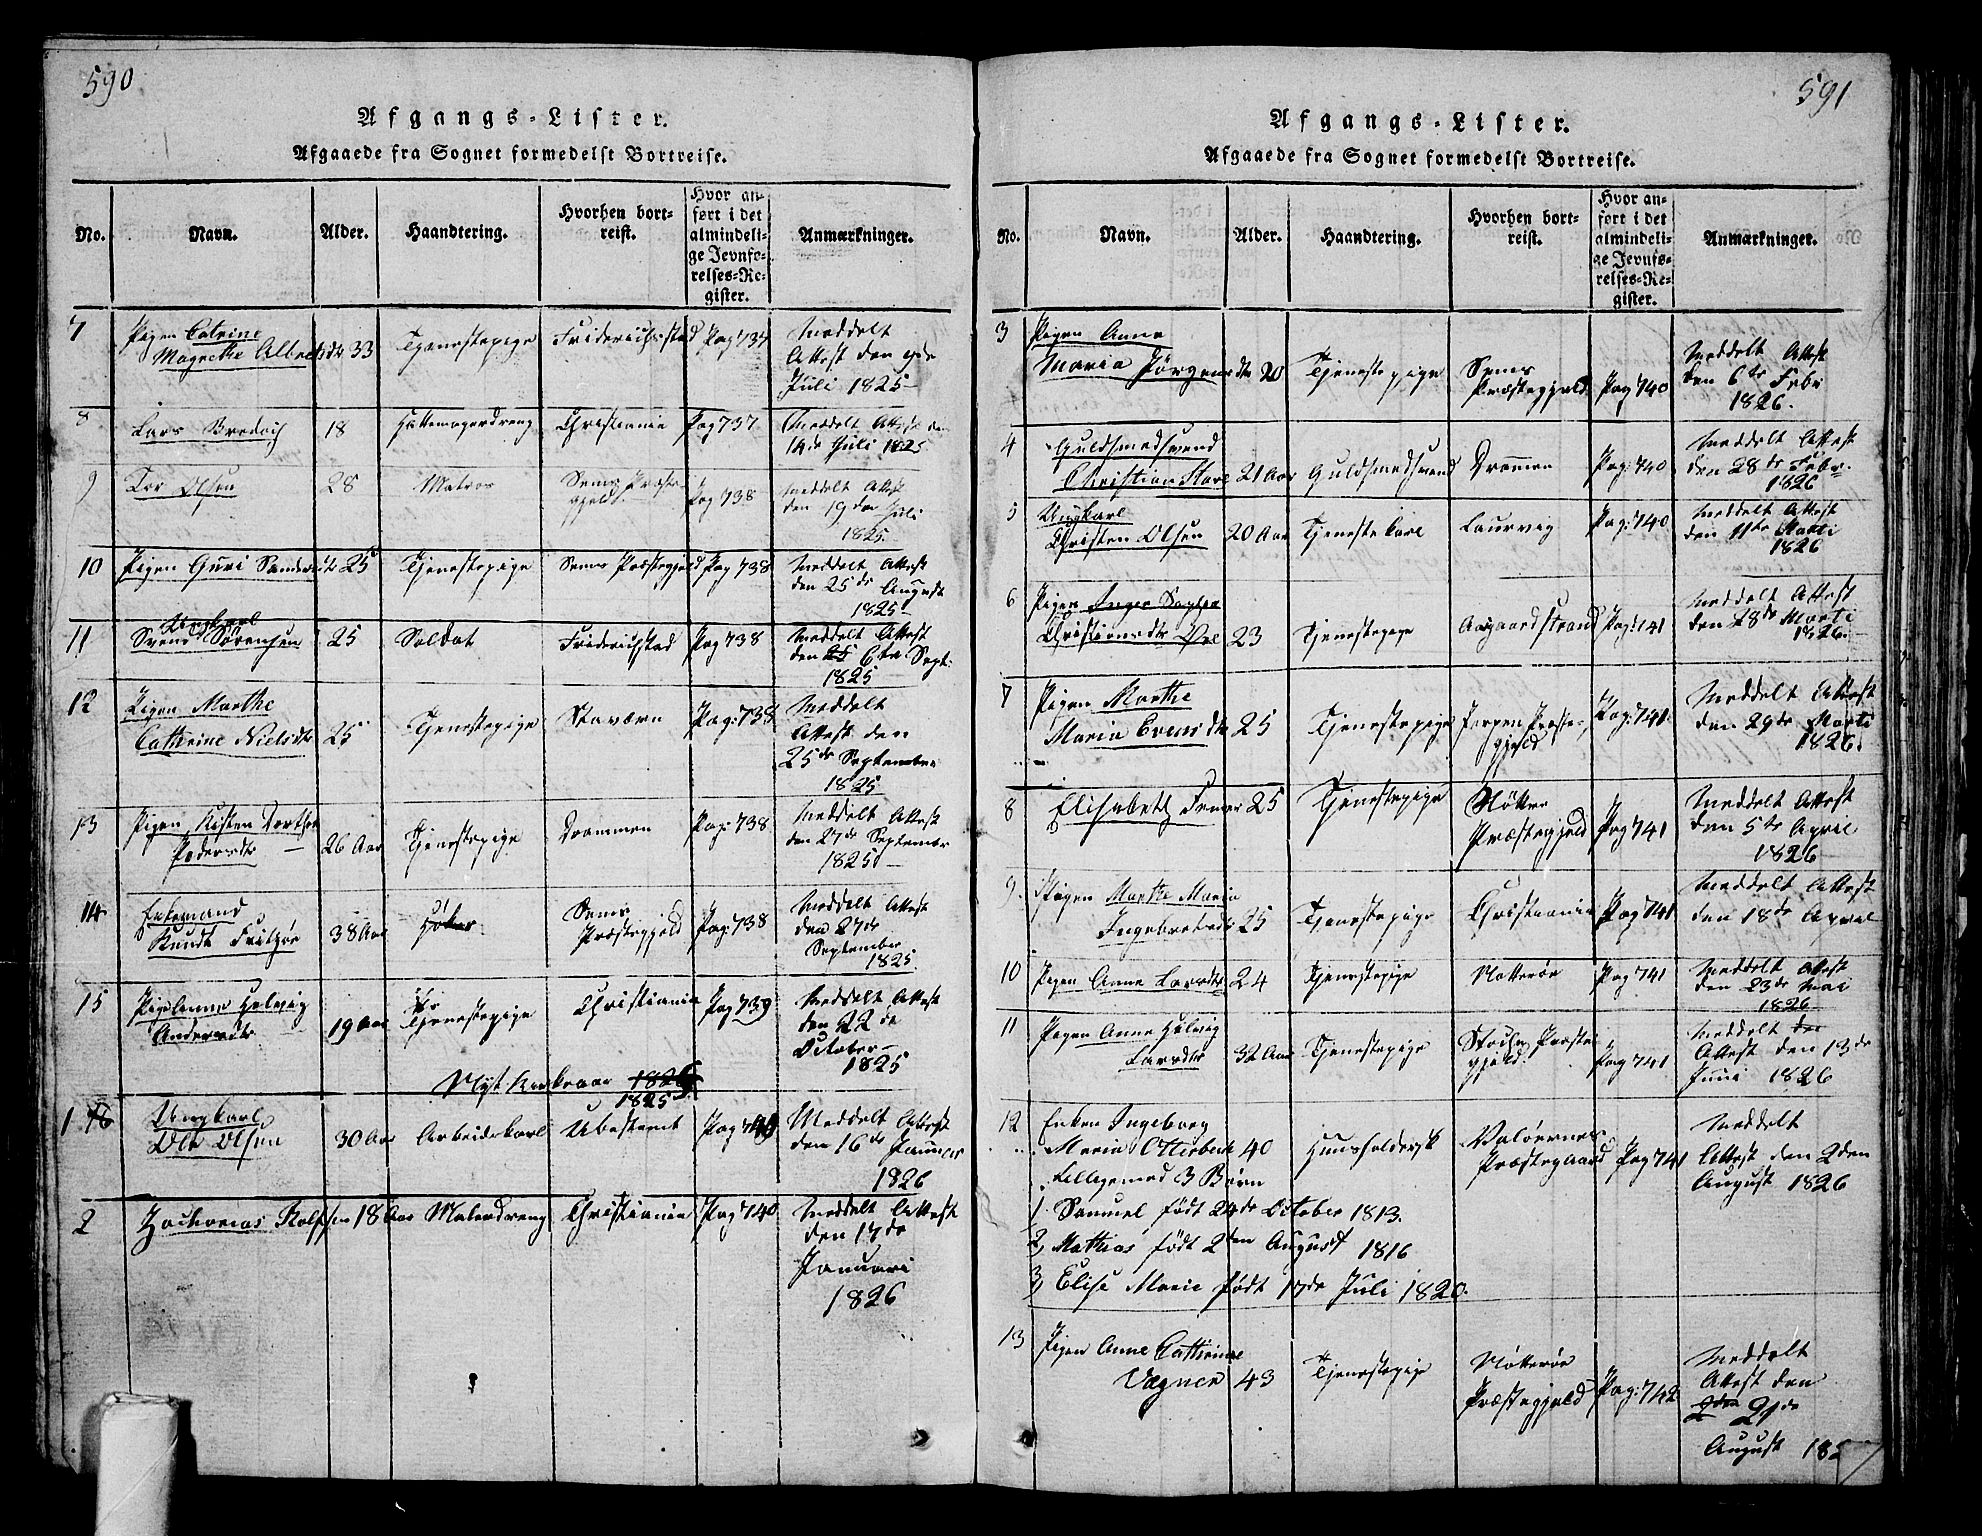 590
Afgangs-Lister.
Afgaaede fra Sognet formedelst Bortreise.
No. Navn. Alder. Haandtering. Hvorhen bortreist. Hvor anført i det almindelige Jevnførelses-Register. Anmærkninger.
7 Pigen Catrine
Magrethe Albretsdtr 33 Tjenestepige Friderichstad Pag 737 Meddelt
Attest den 9de
Juli 1825
8 Lars Bredach 18 Hattemagerdreng Christiania Pag 737 Meddelt Attest den
14de Juli 1825
9 Tor Olsen 28 Matros Sems Præste-
gjeld Pag 738 Meddelt Attest
den 19de Juli
1825
10 Pigen Guri Sandersdtr 25 Tjenestepige Sems Præstegjeld Pag 738 Meddelt Attest
den 25de Augustt
1825
11 Ungkarl
Svend Sørensen 25 Soldat Friderichstad Pag 738 Meddelt Attest
den 6te Sept:
1825
12 Pigen Marthe
Cathrine Nielsdtr 25 Tjenestepige Staværn Pag: 738 Meddelt
Attest den
25de September
1825
13 Pigen Kisten Dorthea
Pedersdtr 26 Aar Tjenestepige Drammen Pag: 738 Meddelt Attest
den 27de September
1825
14 Enkemand
Knudt Fritzøe 38 Aar Sems
Præstegjeld Pag: 738 Meddelt Attest
den 27de
September
1825
15 Pige Anne Helvig
Andersdtr 19 Aar Tjenestepige Christiania Pag 739 Meddelt Attest
den 22de
October
1825
Nyt Kirkeaar 1826
1825
1. 16 Ungkarl
Ole Olsen 30 Aar Arbeidskarl Ubestemt Pag 740 Meddelt Attest
den 16de Januar
1826
2 Zacharias Rolfsen 18 Aar Malerdreng Christiania Pag 740 Meddelt Attest
den 17de
Januari
1826
591
Afgangs-Lister.
Afgaaede fra Sognet formedelst Bortreise.
No. Navn. Alder. Haandtering. Hvorhen bortreist. Hvor anført i det almindelige Jevnførelses-Register. Anmærkninger.
3 Pigen Anne
Maria Jørgensdtr 20 Tjenestepige Sems
Præstegjeld Pag 740 Meddelt Attest
den 6te Febr
1826.
4 Guldsmedsvend
Christian Hore 21 Aar Guldsmedsvend Drammen Pag: 740 Meddelt Attest
den 28de Febr.
1826
5 Ungkarl
Christen Olsen 20 Aar Tjenestekarl Laurvig Pag: 740 Meddelt Attest
den 11te Marti
1826
6 Pigen Inger Sophie
Christiansdtr 23 Tjenestepige Aasgaardstrand Pag: 141 Meddelt Attest
den 28de Marti
1826.
7 Pigen Marthe
Maria Evensdtr 25 Tjenestepige Præste-
gjeld Pag: 741 Meddelt Attest
den 29de Marti
1826.
8 Elisabeth 25 Tjenestepige Nøtter
Præstegjeld Pag 741 Meddelt Attest
den 5te April
1826
9 Pigen Marthe Maria
Ingebretsdtr 25 Tjenestepige Christiania Pag 741 Meddelt Attest
den 18de April
10 Pigen Anne Larsdtr 24 Tjenestepige Nøtterøe Pag 741 Meddelt Attest
den 23de Mai
1826
11 Pigen Anne Helvig
Larsdtr 32 Aar Tjenestepige Præste-
gjeld Pag 741 Meddelt
Attest den 13de
Juni 1826
12 Enken Ingeborg
Maria Otterbech 40 Huusholderske Valøernes
Præstegaard Pag 741 Meddelt
Attest den 2den
August 1826
Tilligemed 3 Børn
1. Samuel født 24de October 1813.
2, Mathias født 2den Augustt 1816
3, Elise Marie født 17de Juli 1820.
13 Pigen Anne Cathrine
Wagner 43 Tjenestepige Nøtterøe
Præstegjeld Pag: 742 Meddelt
Attest den
21de
August 182